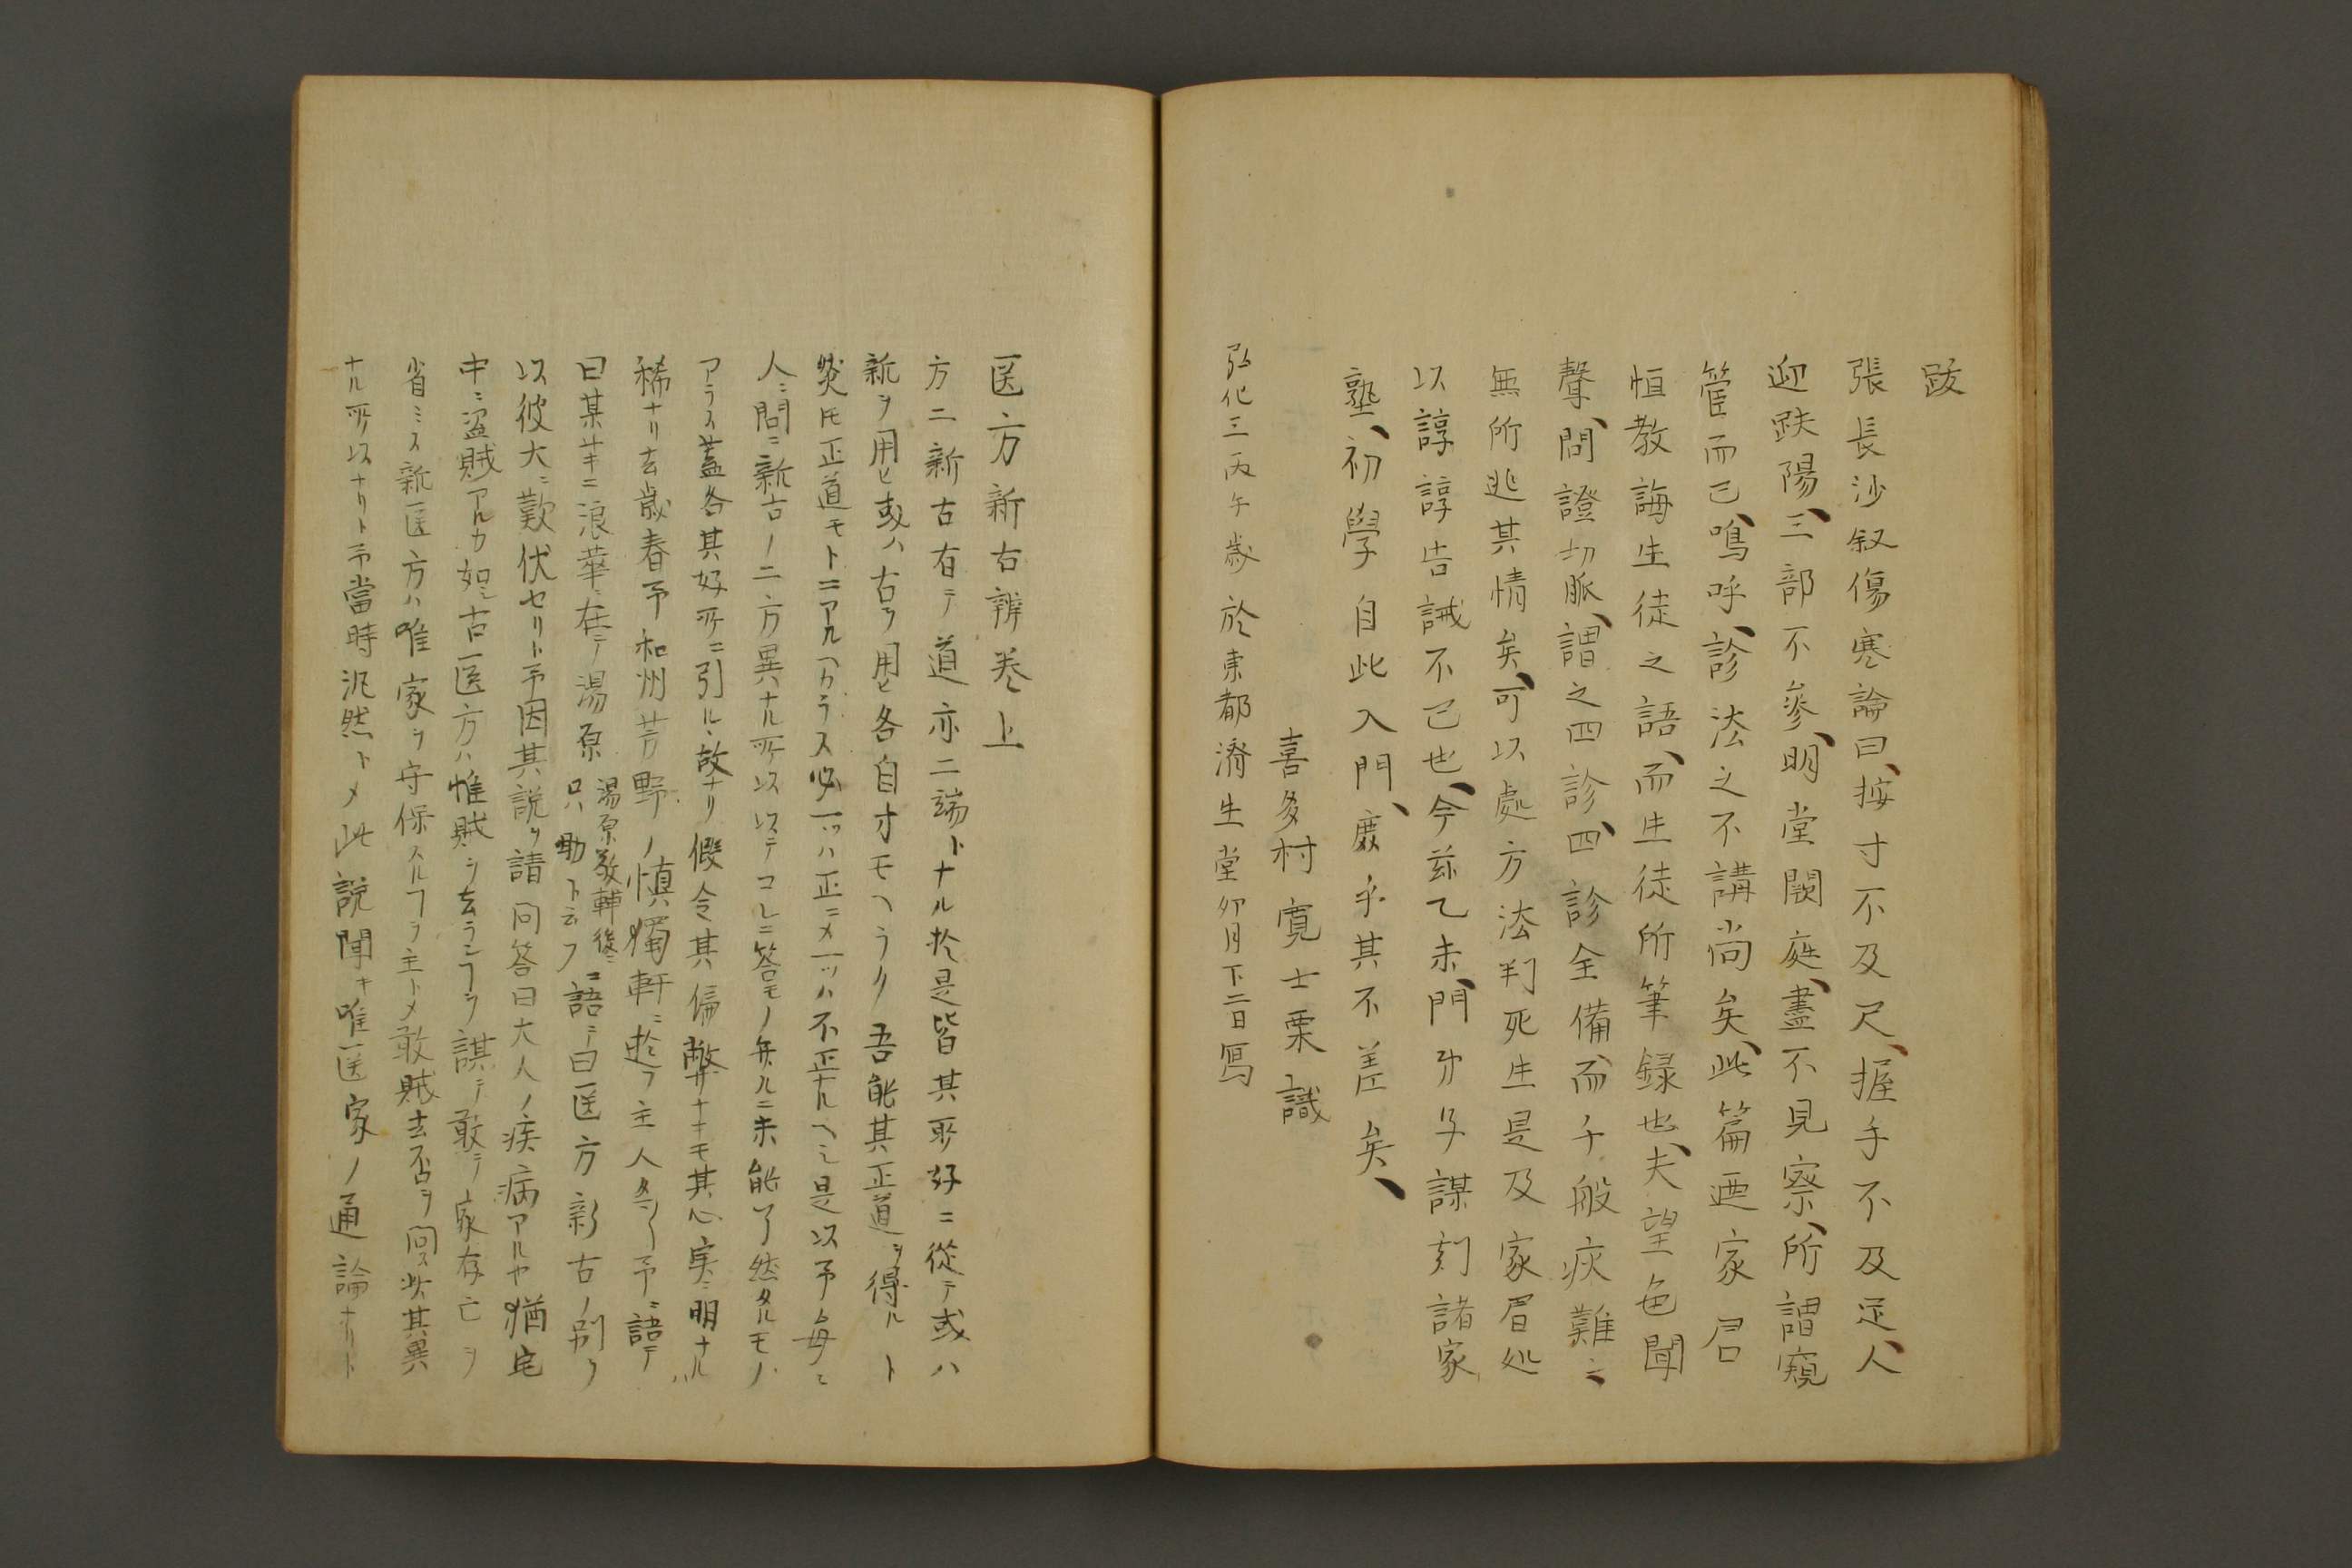 跋
張長沙叙傷寒論曰、按寸不及尺、握手不及足、人
迎趺陽、三部不參、明堂闕庭、盡不見察、所謂窺
管而已、鳴呼、診法之不講尚矣、此篇迺家君
恒教誨生徒之語、而生徒所筆録也、夫望色聞
聲、問證切脈、謂之四診、四診全備、而千般疢難之
無所逃其情矣、可以處方法判死生是及家君処
以諄諄告誡不已也、今茲乙未、門弟子謀刻諸家
塾、初學自此入門、庶乎其不差矣、
喜多村寛士栗識
弘化三丙午歳於東都濟生堂卯月下二日寫
医方新古辨巻上
方ニ新古有テ道亦二端トナル於是皆其所好ニ從テ或ハ
新ヲ用ヒ或ハ古ヲ用ヒ各自オモヘラク吾能其正道ヲ得ルト
然𪜈正道モトニアルヘカラス必一ツハ正ニメ一ツハ不正ナルヘシ是以予毎ニ
人ニ問ニ新古ノ二方異ナル所以以テコレニ答モノ無ルニ未能了然タルモノ
アラス蓋各其好所ニ引ル故ナリ假令其偏弊ナキモ其心実ニ明ナル
稀ナリ去歳春予和州芳野ノ慎獨軒ニ遊フ主人予ニ語テ
曰某サキニ浪華ニ在テ湯原湯原敬輔後ニ只助ト云フニ語テ曰医方新古ノ別ヲ
以彼大ニ歎伏セリト予因其説ヲ請問答曰大人ノ疾病アルヤ猶宅
中ニ盗賊アルカ如シ古医方ハ惟賊ヲ去ランヿヲ謀テ敢テ家存亡ヲ
省ミス新医方ハ唯家ヲ守保スルヿヲ主トメ敢賊去否ヲ問ス此其異
ナル所以ナリト予當時汎然トメ此説聞キ唯医家ノ通論ナリト